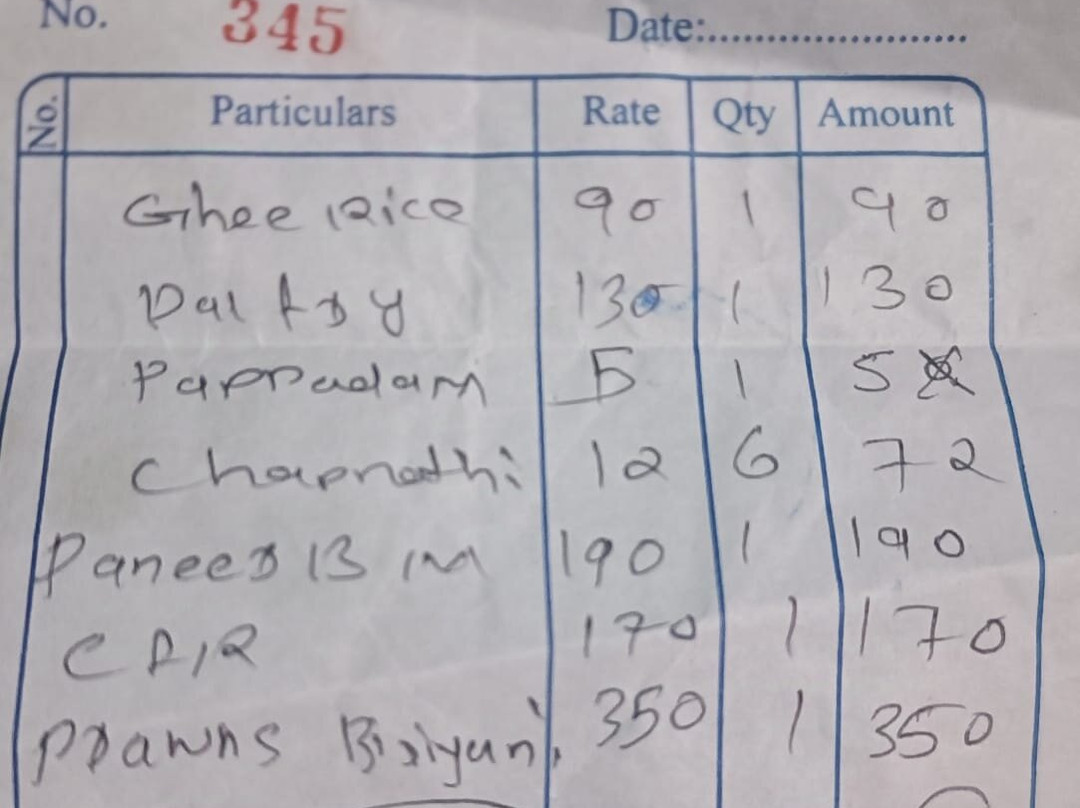 No. 345 Date:......................
No. Particulars Rate Qty Amount
Ghee Rice 90 1 90
Dal fry 130 1 130
Pappadam 5 1 5
Chapnathi 12 6 72
Paneer B M 190 1 190
C F,R 170 1 170
Prawns Biriyani 350 1 350